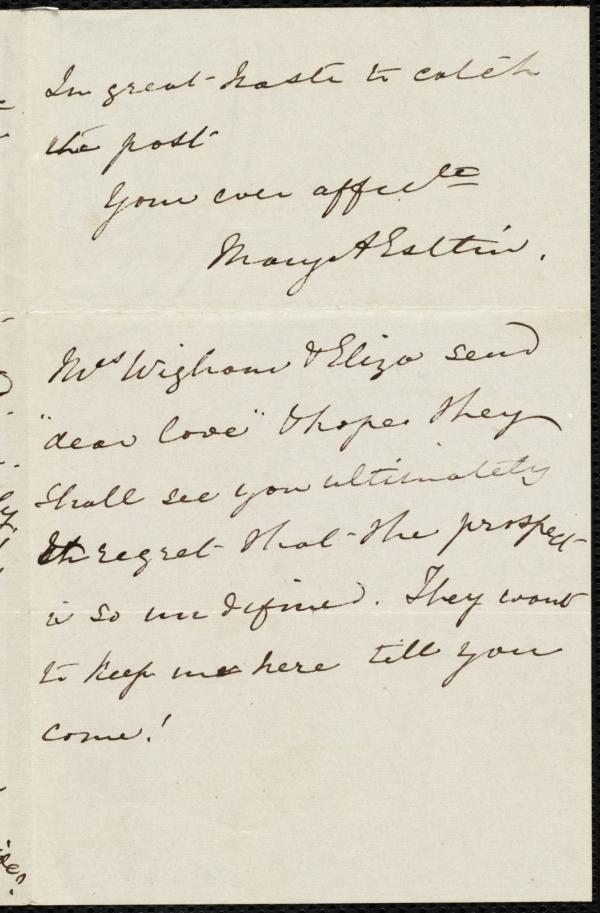 In great haste to catch
the post
Your ever affecte
Mary A Estlin.
Mrs Wigham & Eliza send
"dear love" & hope they
shall see you ultimately
& regret that the prospect
is so undefined. They want
to keep me here till you
come!